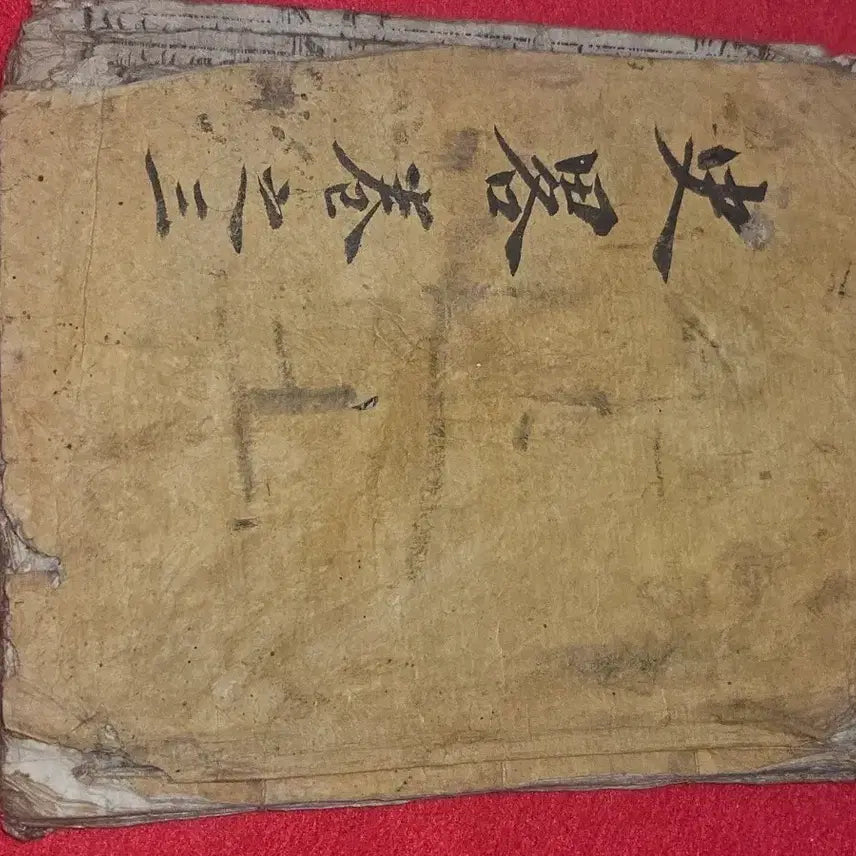 史畧卷之三